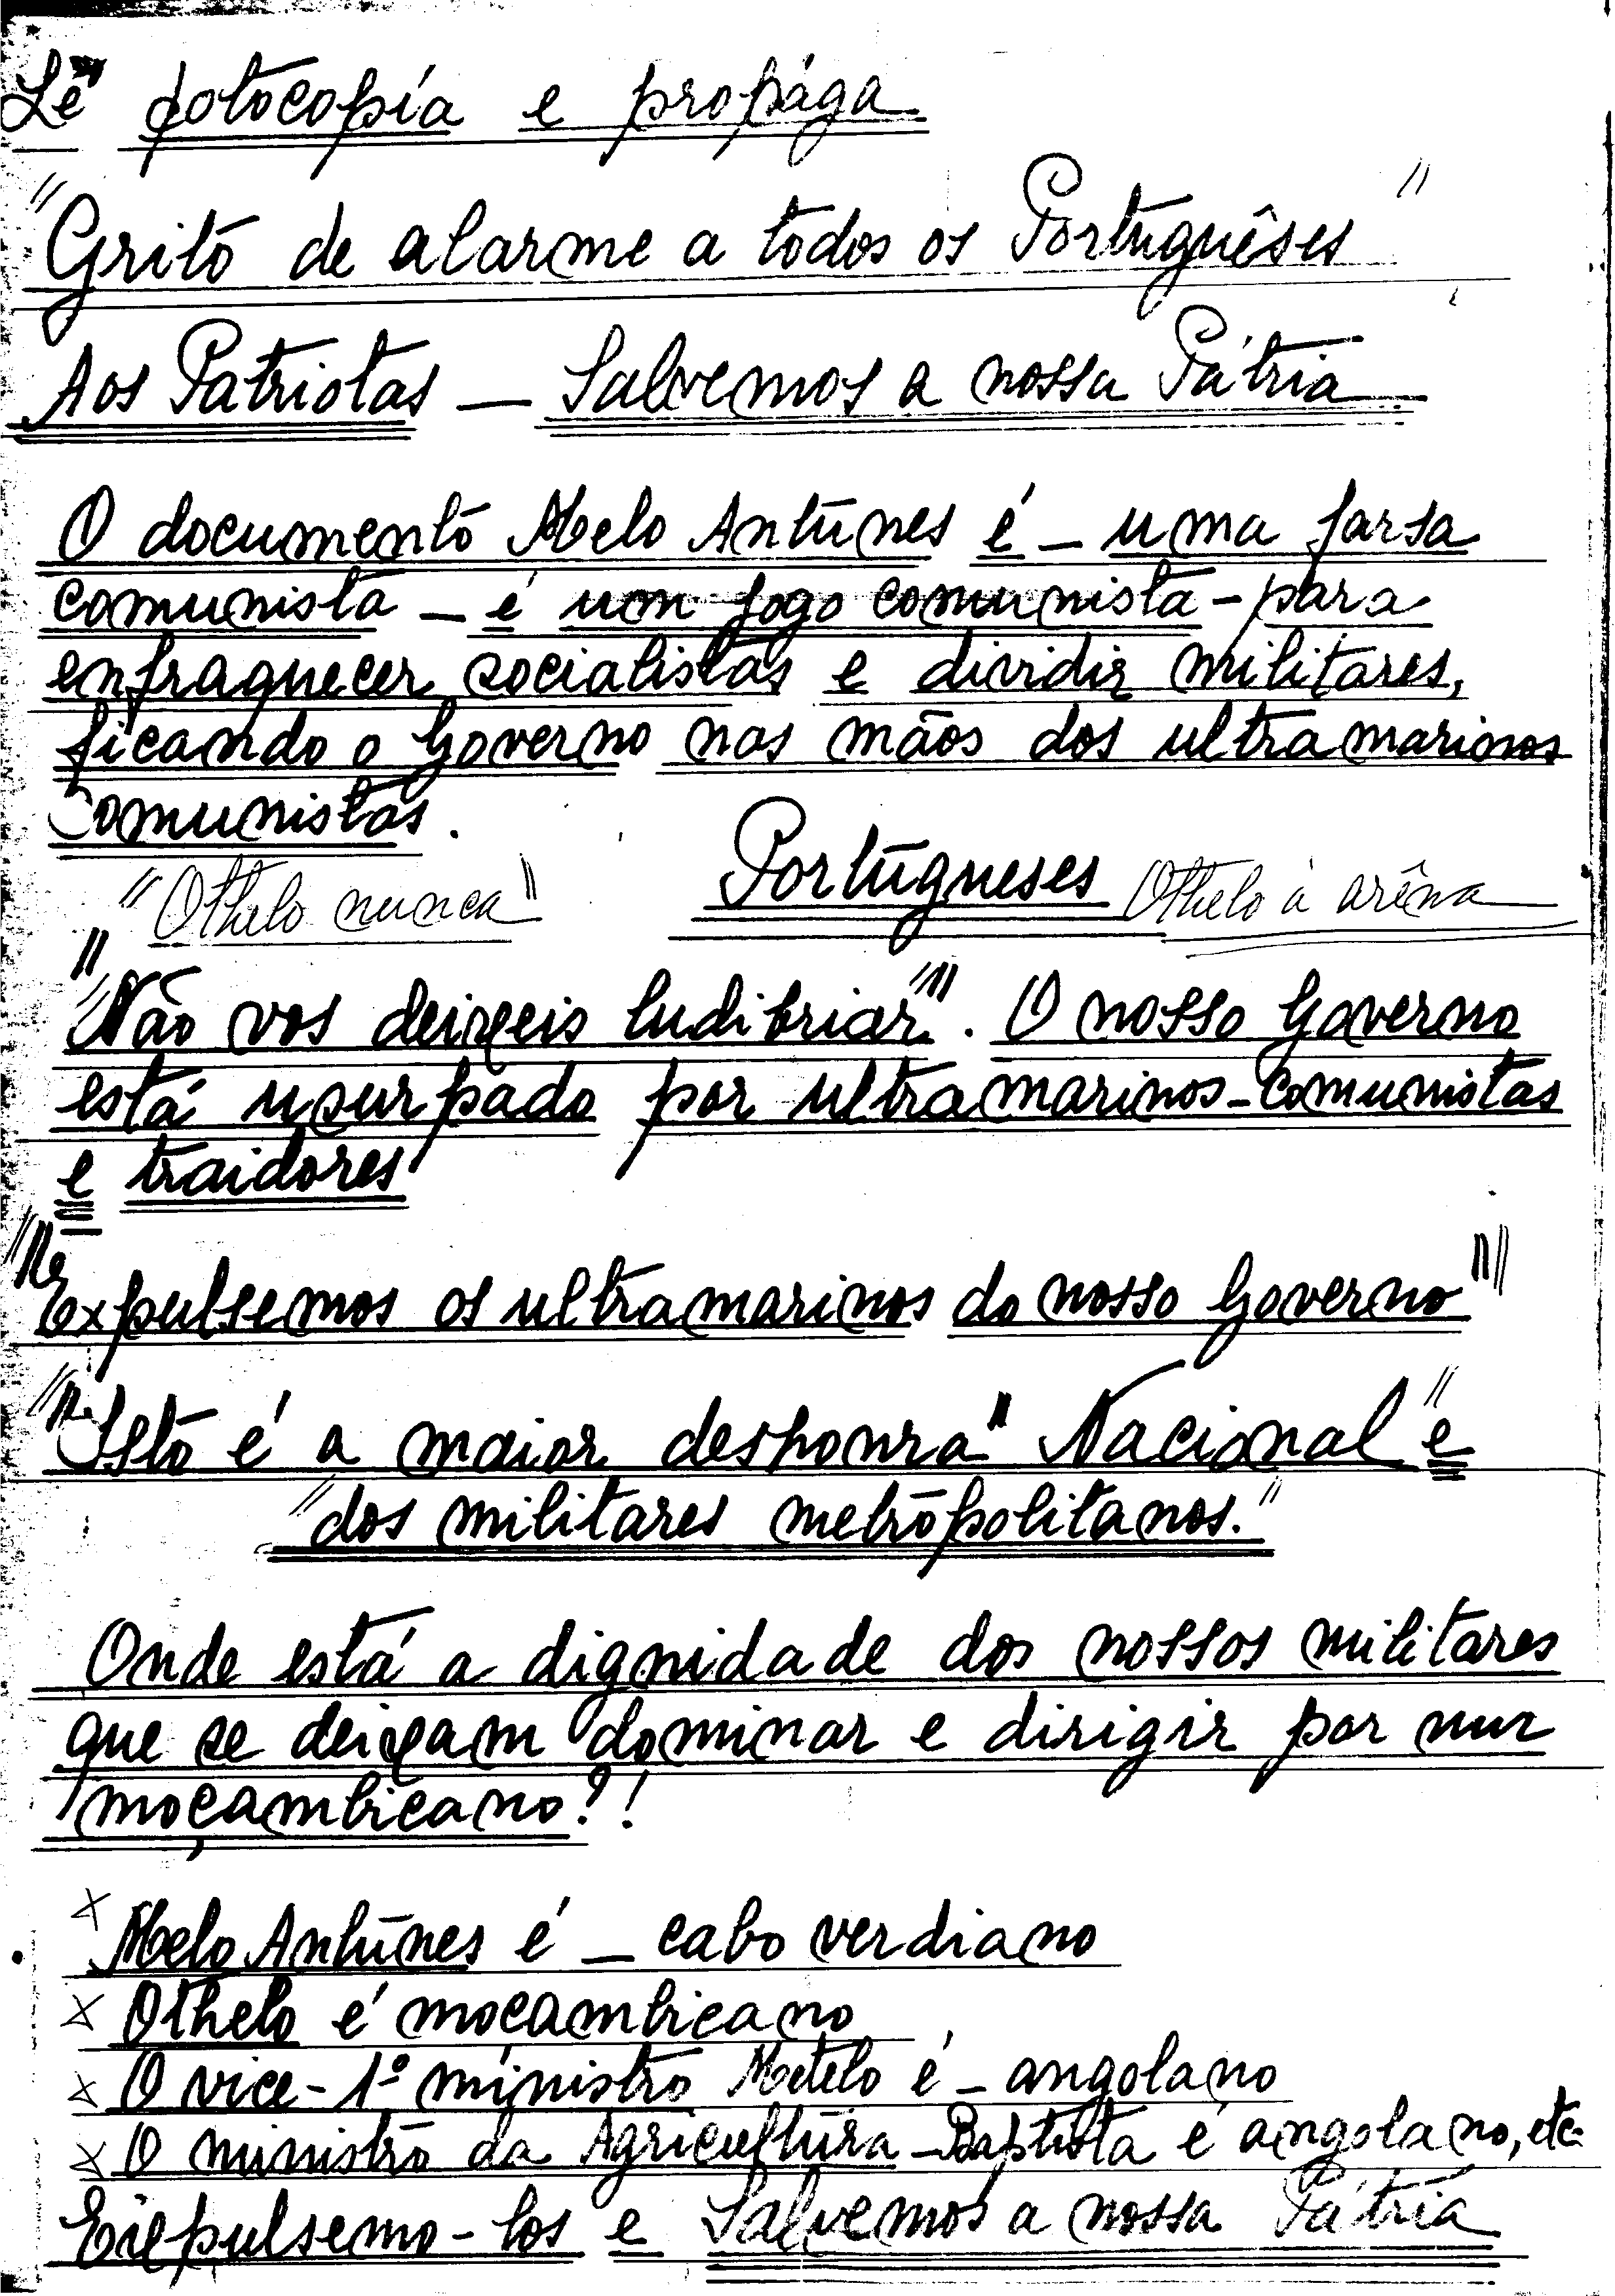 Lê fotocopía e propága
"Grito de alarme a todos os Portuguêses"
Aos Patriotas — Salvemos a nossa Pátria
O documento Melo Antúnes é — uma farsa
comunista — é um jogo comunista - para
enfraquecer socialistas e dividir militares,
ficando o Governo nas mãos dos ultramarinos
Comunistas.
"Othelo nunca" Portugueses Othelo à arêna
"Não vos deixeis ludibriar". O nosso Governo
está usurpado por ultramarinos-Comunistas
e traidores
"Expulsemos os ultramarinos do nosso Governo"
"Isto é a maior deshonra" Nacional" e
"dos militares metrópolitanos."
Onde está a dignidade dos nossos militares
que se deixam dominar e dirigir por um
moçambicano?!
x Melo Antúnes é — cabo verdiano
x Othelo é moçambicano
x O vice-1º ministro Metelo é - angolano
x O ministro da Agricultúra - Baptista é angolano, etc.
Expulsemo-los e Salvemos a nossa Pátria